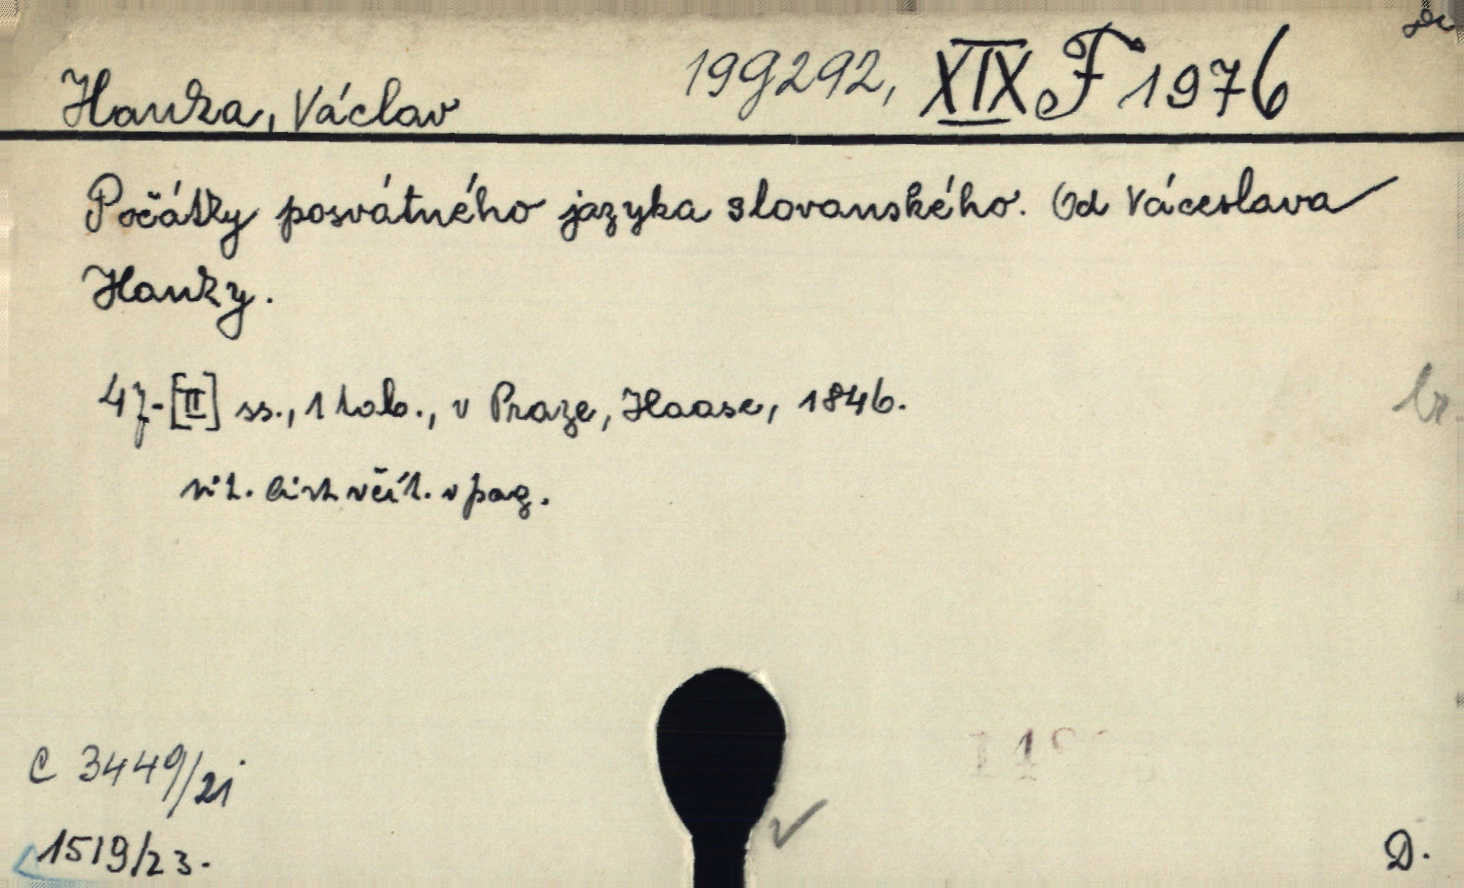 Hanka, Václav 199292, XIX F 1976
Počátky posvátného jazyka slovanského. Od Váceslava
Hanky.
47-[II] ss., 1 tab., v Praze, Haase, 1846.
tit. list včít. v pag.
br.
C 3449/21
1519/23.
D.